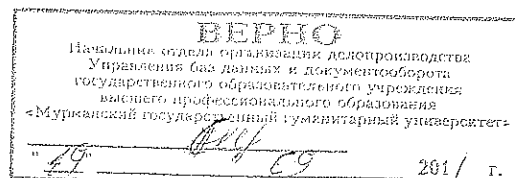 ВЕРНО
Начальник отдела организации делопроизводства
Управления баз данных и документооборота
государственного образовательного учреждения
высшего профессионального образования
«Мурманский государственный гуманитарный университет»
" 29 " 09 2011 г.